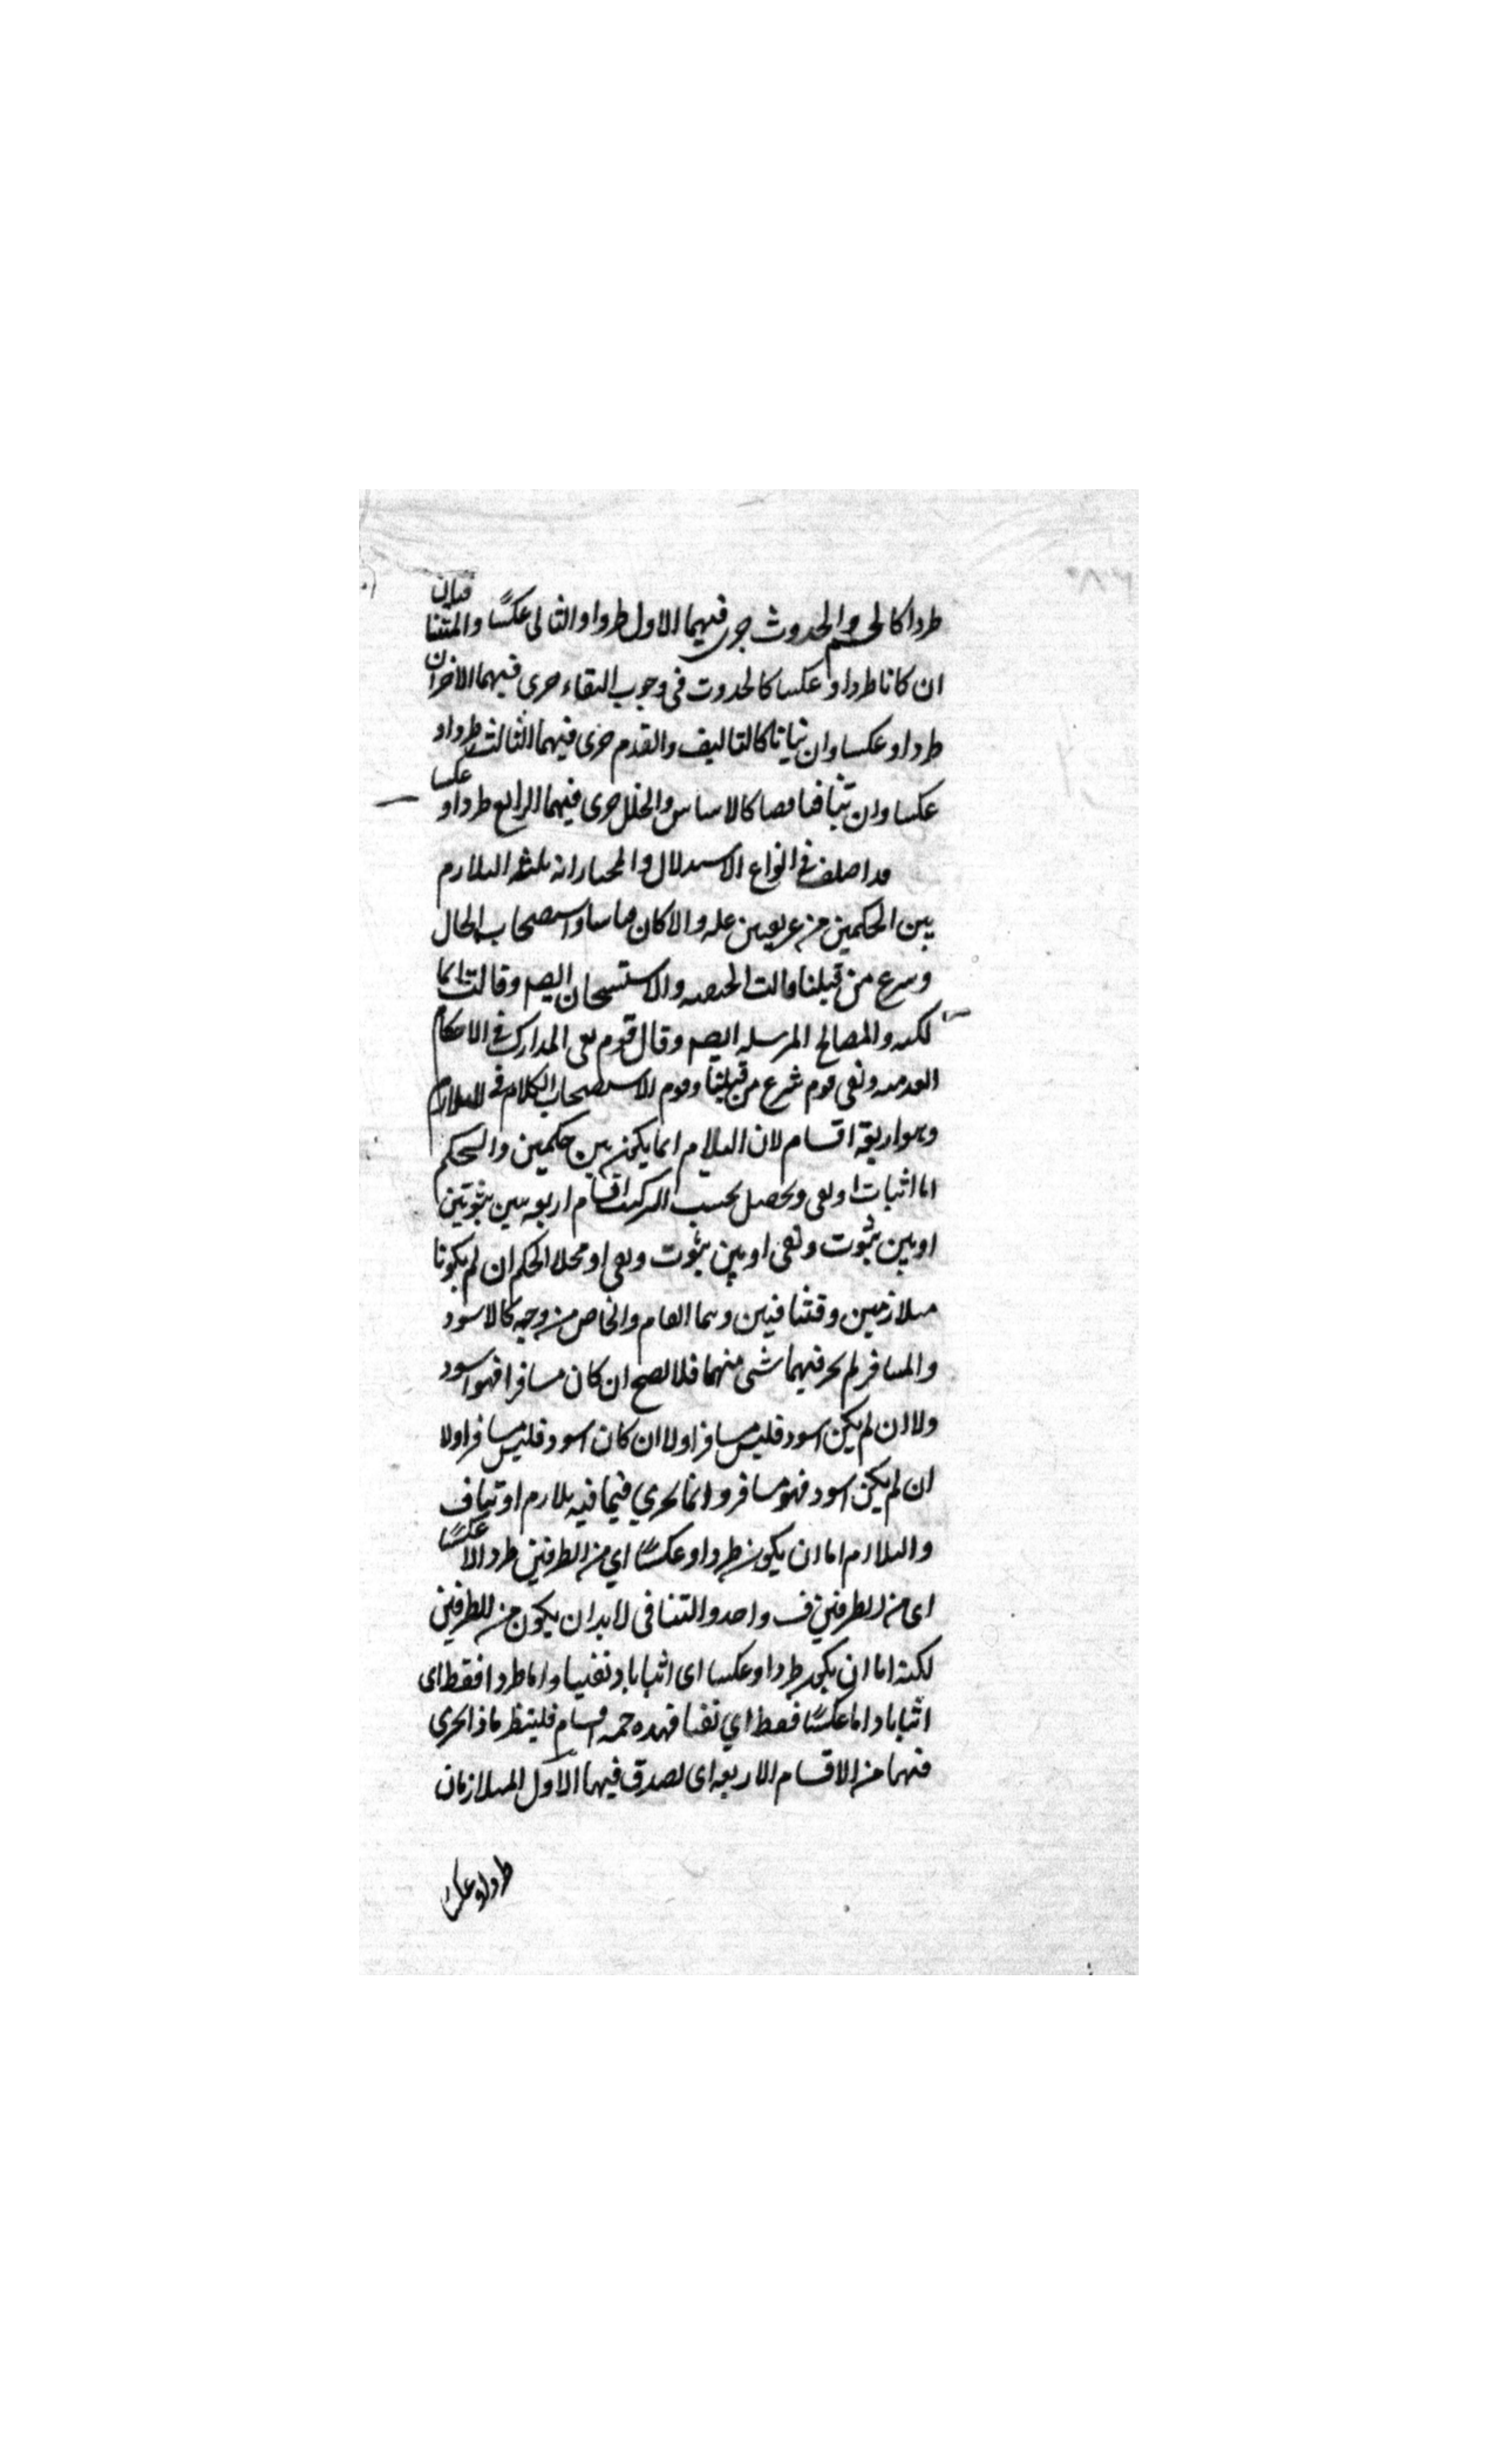 طرداكالجسم والحدوث جرى فيهما الاول طردا والثانى عكسًا والمتنافيان
ان كانا طردا وعكسا كالحدوث فى وجوب البقاء جرى فيهما الاخران
طردا وعكسا وان تنافيا اثباتا كالتاليف والقدم جرى فيهما الثالث طردا و
عكسا وان تنافيا نفيا كالاساس والخلل جرى فيهما الرابع طردا وعكسا
قد اختلف في انواع الاستدلال والمختار انه ثلثه التلازم
بين الحكمين من غير تعيين عله والا كان قياسا واستصحاب الحال
وشرع من قبلنا قالت الحنفيه والاستحسان ايضا وقالت الما
لكيه والمصالح المرسله ايضا وقال قوم نفى المدارك في الاحكام
العدميه ونفى قوم شرع من قبلنا وقوم الاستصحاب الكلام في التلازم
وهو اربعة اقسام لان التلازم انما يكون بين حكمين والحكم
اما اثبات او نفى وتحصل بحسب التركيب اقسام اربعه بين ثبوتين
او بين ثبوت ونفى او بين ثبوت ونفى او محلا الحكم ان لم يكونا
متلازمين ومتنافيين وهما العام والخاص من وجه كالاسود
والمسافر لم يجر فيهما شى منهما فلا يصح ان كان مسافرا فهو اسود
ولا ان لم يكن اسود فليس مسافرا ولا ان كان اسود فليس مسافرا ولا
ان لم يكن اسود فهو مسافر وانما يجري فيما فيه تلازم او تناف
والتلازم اما ان يكون طردا وعكسًا اي من الطرفين طردا لا عكسًا
اى من الطرفين ف واحد والتنافى لابد ان يكون من الطرفين
لكنه اما ان يكون طردا وعكسا اى اثباتا ونفيا واما طردا فقط اى
اثباتا واما عكسًا فقط اي نفيا فهذه خمسه اقسام فلينظر ماذا يجرى
فيهما من الاقسام الاربعه اى يصدق فيهما الاول المتلازمان
طردا وعكسا